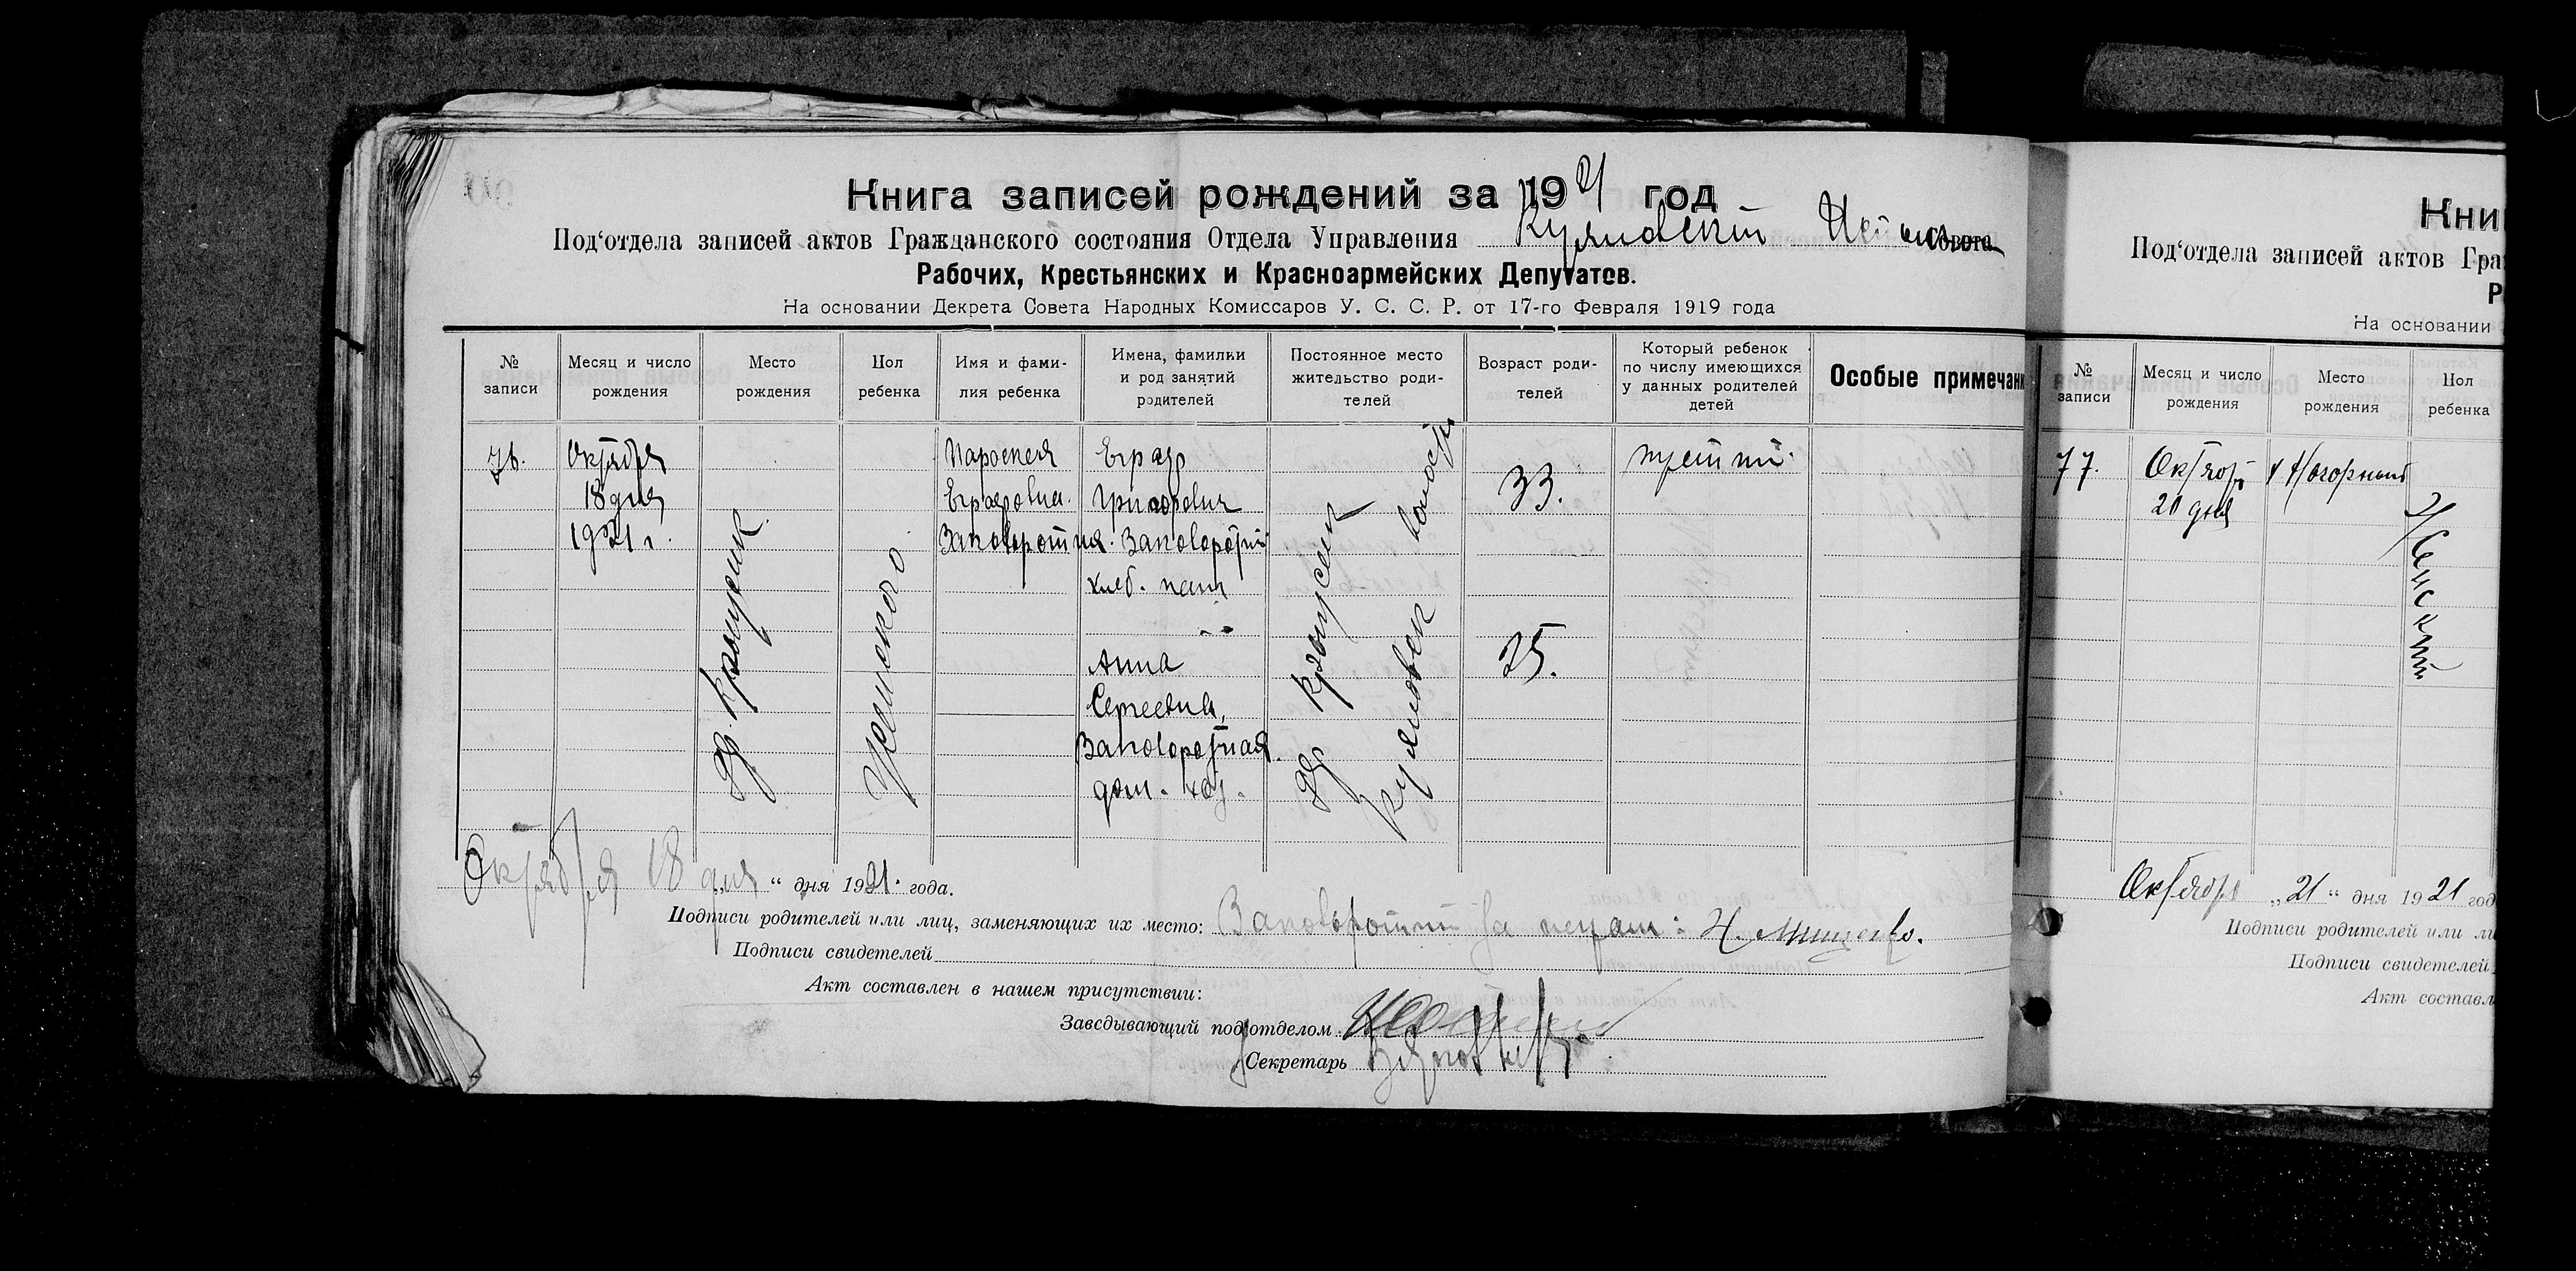 Книга записей рождений за 1921 год
Под‘отдела записей актов Гражданского состояния Отдела Управления Совета
Рабочих, Крестьянских и Красноармейских Депутатов.
На основании Декрета Совета Народных Комиссаров У. С. С. Р. от 17-го Февраля 1919 года
№ записи
Месяц и число рождения
Место рождения
Пол ребенка
Имя и фами-
лия ребенка
Имена, фамилии
и род занятий
родителей
Постоянное место
жительство роди-
телей
Возраст роди-
телей
Который ребенок
по числу имеющихся
у данных родителей
детей
Особые примечан
76.
Октября
18 дня
1921 г.
Женского
Заповоротная
Григорович
хлеб. паш
Анна
Сергеевна
Заповоротная
дом. хоз.
33.
25.
третий.
Октября 18 дня “ дня 1921. года.
Подписи родителей или лиц, заменяющих их место: Заповоротний за неграм: Н. Мищенко.
Подписи свидетелей
Акт составлен в нашем присутствии:
Заведывающий под‘отделом
Секретарь
Кни
Под‘отдела записей актов Гра
Р
На основании
№ записи
Месяц и число
рождения
Место
рождения
Пол
ребенка
77.
Октября
20 дня
Женский
Октября „21“ дня 1921 год
Подписи родителей или ли
Подписи свидетелей
Акт составл